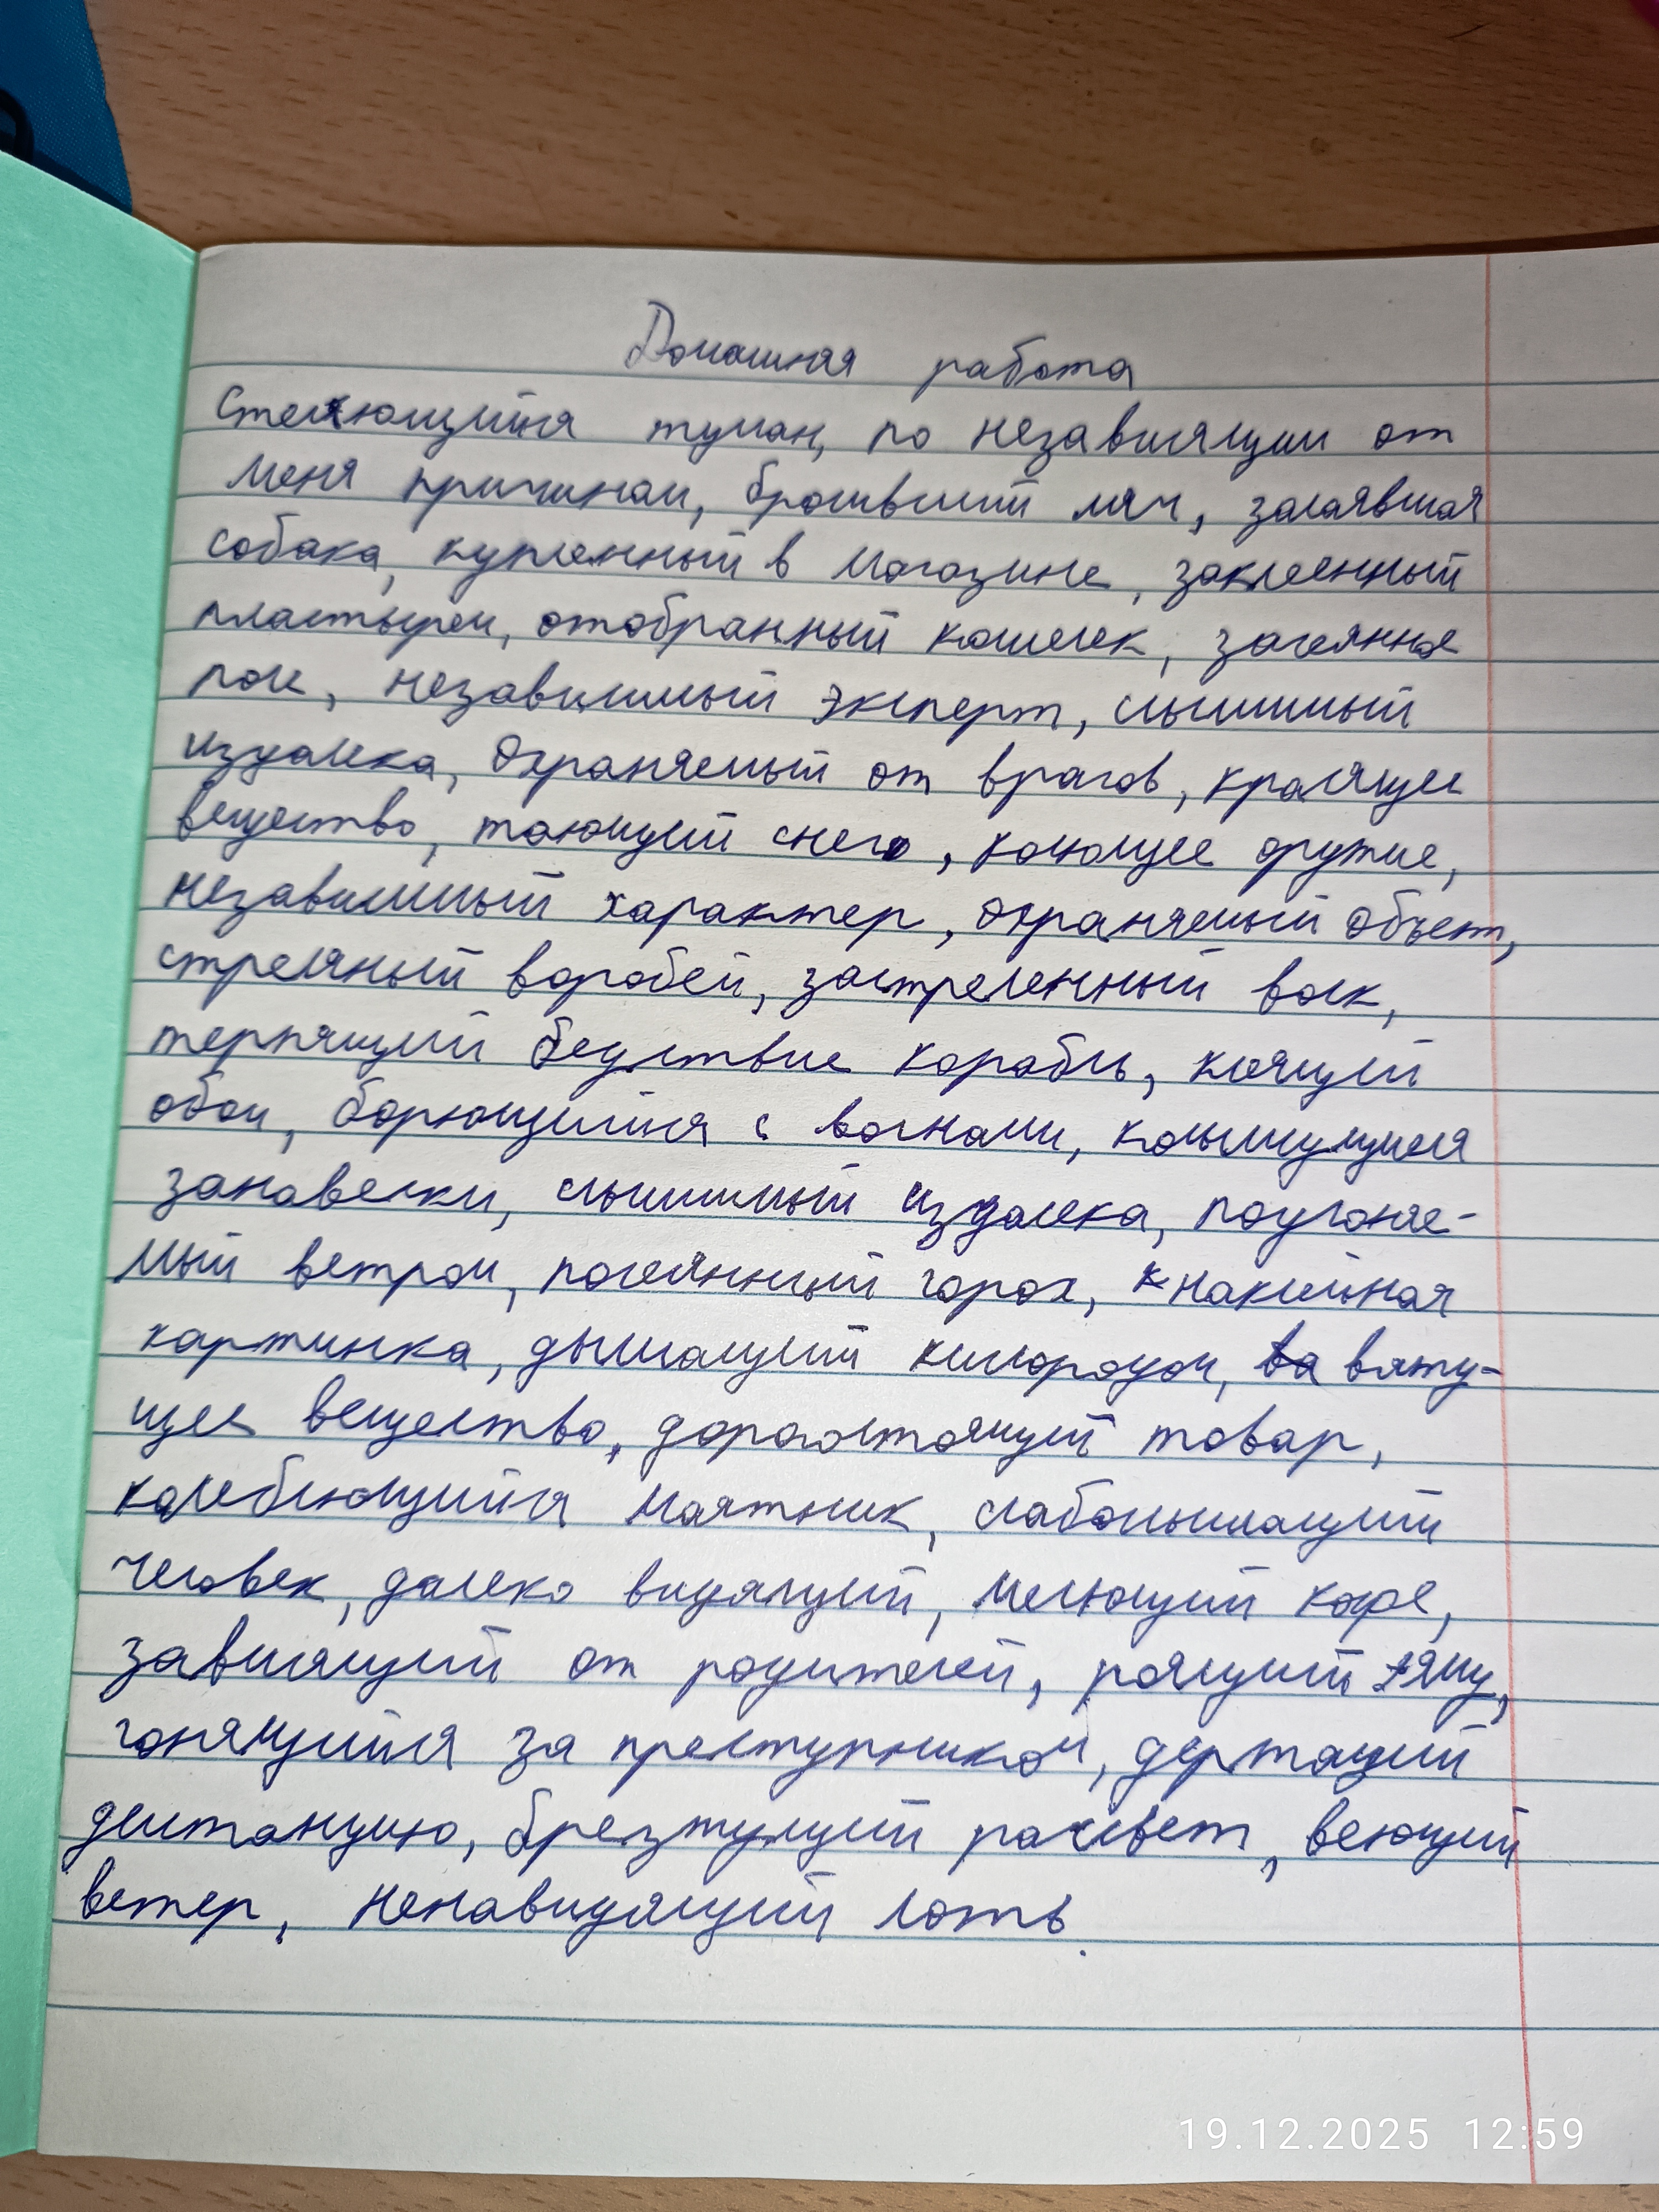 Домашняя работа
Стелющийся туман, по независящим от
меня причинам, бросивший мяч, залаявшая
собака, купленный в магазине, заклеенный
пластырем, отобранный кошелёк, засеянное
поле, независимый эксперт, слышимый
издалека, охраняемый от врагов, красящее
вещество, тающий снег, колющее оружие,
независимый характер, охраняемый объект,
стреляный воробей, застреленный волк,
терпящий бедствие корабль, клеящий
обои, борющийся с волнами, колышущиеся
занавески, слышимый издалека, подгоняе-
мый ветром, посеянный горох,
картинка, дышащий кислородом, вяжу-
щее вещество, дорогостоящий товар,
колеблющийся маятник, слабослышащий
человек, далеко видящий, мелющий кофе,
зависящий от родителей, роющий яму,
гонящийся за преступником, держащий
дистанцию, брезжущий рассвет, веющий
ветер, ненавидящий ложь.
19.12.2025 12:59